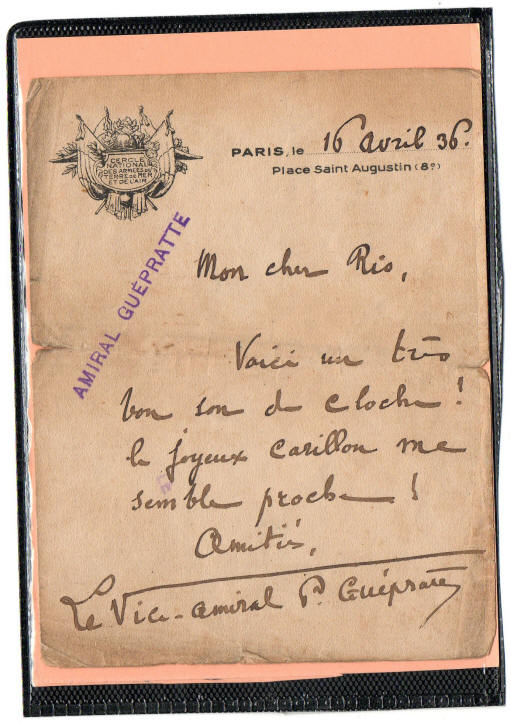 CERCLE
NATIONAL
DES ARMÉES DE
TERRE DE MER
ET DE L'AIR
PARIS, le 16 avril 36.
Place Saint Augustin (8e)
AMIRAL GUÉPRATTE
Mon cher Rio,
Voici un très
bon son de cloche !
le joyeux carillon me
semble proche !
Amitiés,
Le Vice-amiral P. Guépratte